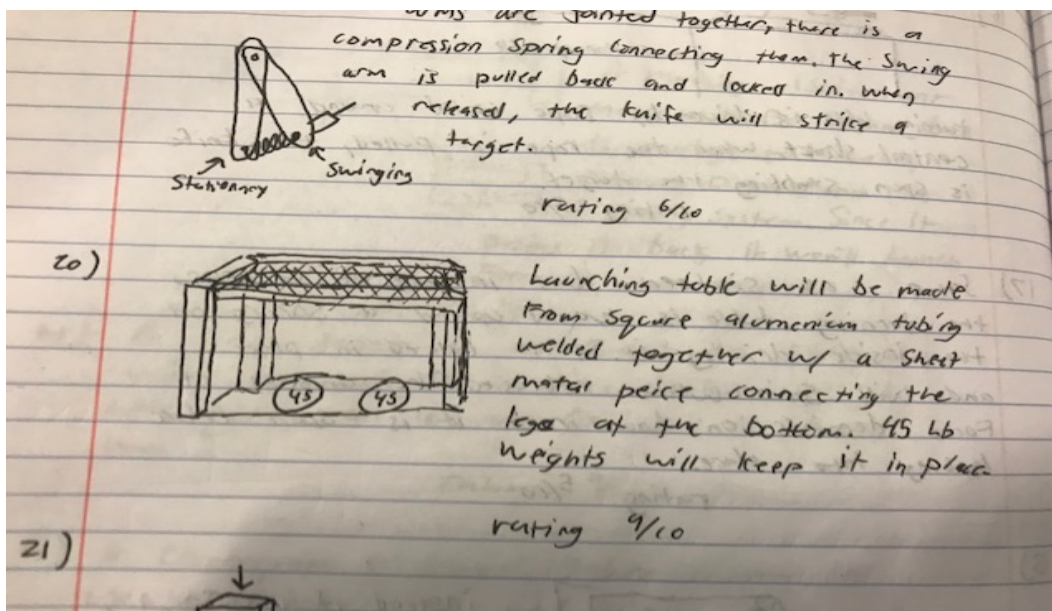 arms are jointed together, there is a
compression spring connecting them. The swing
arm is pulled back and locked in. when
released, the knife will strike a
target.
Stationary
Swinging
rating 6/10
20)
Launching table will be made
From sqcure alumenium tubing
welded together w/ a sheet
matal peice connecting the
legs at the bottom. 45 Lb
weights will keep it in place.
45
45
rating 9/10
21)